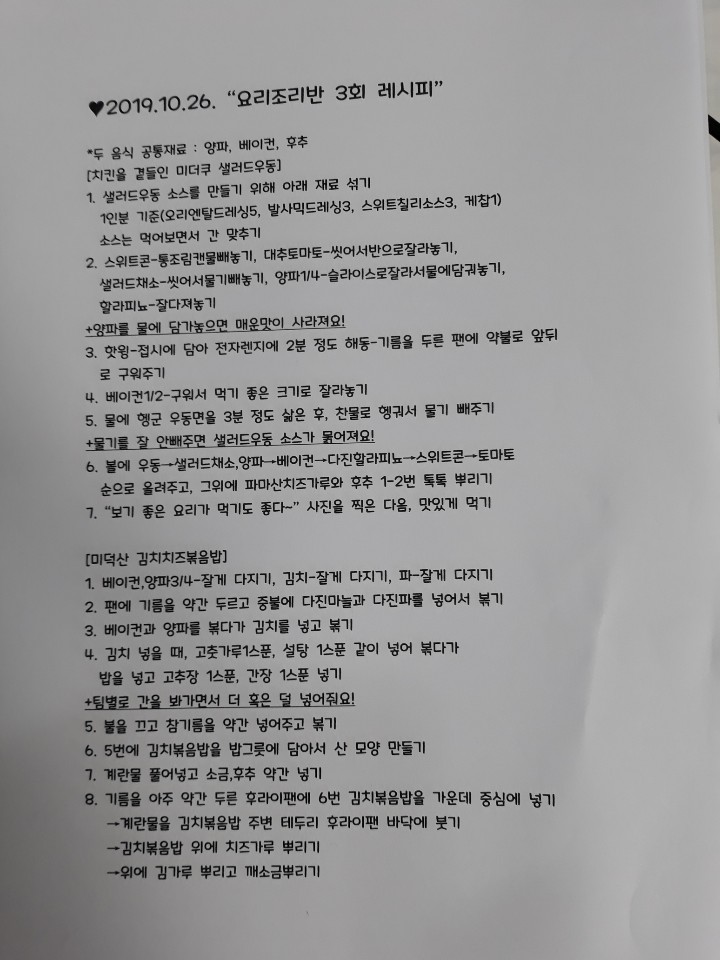 ♥2019.10.26. “요리조리반 3회 레시피”
*두 음식 공통재료 : 양파, 베이컨, 후추
[치킨을 곁들인 미더쿠 샐러드우동]
1. 샐러드우동 소스를 만들기 위해 아래 재료 섞기
1인분 기준(오리엔탈드레싱5, 발사믹드레싱3, 스위트칠리소스3, 케찹1)
소스는 먹어보면서 간 맞추기
2. 스위트콘-통조림캔물빼놓기, 대추토마토-씻어서반으로잘라놓기,
샐러드채소-씻어서물기빼놓기, 양파1/4-슬라이스로잘라서물에담궈놓기,
할라피뇨-잘다져놓기
+양파를 물에 담가놓으면 매운맛이 사라져요!
3. 핫윙-접시에 담아 전자렌지에 2분 정도 해동-기름을 두른 팬에 약불로 앞뒤
로 구워주기
4. 베이컨1/2-구워서 먹기 좋은 크기로 잘라놓기
5. 물에 헹군 우동면을 3분 정도 삶은 후, 찬물로 헹궈서 물기 빼주기
+물기를 잘 안빼주면 샐러드우동 소스가 묽어져요!
6. 볼에 우동→샐러드채소,양파→베이컨→다진할라피뇨→스위트콘→토마토
순으로 올려주고, 그위에 파마산치즈가루와 후추 1-2번 톡톡 뿌리기
7. “보기 좋은 요리가 먹기도 좋다~” 사진을 찍은 다음, 맛있게 먹기
[미덕산 김치치즈볶음밥]
1. 베이컨,양파3/4-잘게 다지기, 김치-잘게 다지기, 파-잘게 다지기
2. 팬에 기름을 약간 두르고 중불에 다진마늘과 다진파를 넣어서 볶기
3. 베이컨과 양파를 볶다가 김치를 넣고 볶기
4. 김치 넣을 때, 고춧가루1스푼, 설탕 1스푼 같이 넣어 볶다가
밥을 넣고 고추장 1스푼, 간장 1스푼 넣기
+팀별로 간을 봐가면서 더 혹은 덜 넣어줘요!
5. 불을 끄고 참기름을 약간 넣어주고 볶기
6. 5번에 김치볶음밥을 밥그릇에 담아서 산 모양 만들기
7. 계란물 풀어넣고 소금,후추 약간 넣기
8. 기름을 아주 약간 두른 후라이팬에 6번 김치볶음밥을 가운데 중심에 넣기
→계란물을 김치볶음밥 주변 테두리 후라이팬 바닥에 붓기
→김치볶음밥 위에 치즈가루 뿌리기
→위에 김가루 뿌리고 깨소금뿌리기